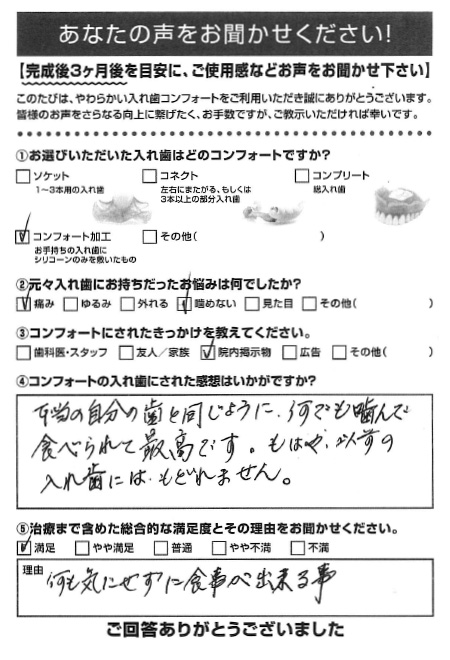 あなたの声をお聞かせください!
【完成後3ヶ月後を目安に、ご使用感などお声をお聞かせ下さい】
このたびは、やわらかい入れ歯コンフォートをご利用いただき誠にありがとうございます。
皆様のお声をさらなる向上に繋げたく、お手数ですが、ご教示いただければ幸いです。
①お選びいただいた入れ歯はどのコンフォートですか?
□ソケット □コネクト □コンプリート
1〜3本用の入れ歯 左右にまたがる、もしくは 総入れ歯
3本以上の部分入れ歯
☑コンフォート加工 □その他( )
お手持ちの入れ歯に
シリコーンのみを敷いたもの
②元々入れ歯にお持ちだったお悩みは何でしたか?
☑痛み □ゆるみ □外れる ☑噛めない □見た目 □その他( )
③コンフォートにされたきっかけを教えてください。
□歯科医・スタッフ □友人/家族 ☑院内掲示物 □広告 □その他( )
④コンフォートの入れ歯にされた感想はいかがですか?
本当の自分の歯と同じように、何でも噛んで
食べられて最高です。もはや、以前の
入れ歯には、もどれません。
⑤治療まで含めた総合的な満足度とその理由をお聞かせください。
☑満足 □やや満足 □普通 □やや不満 □不満
理由 何も気にせずに食事が出来る事
ご回答ありがとうございました